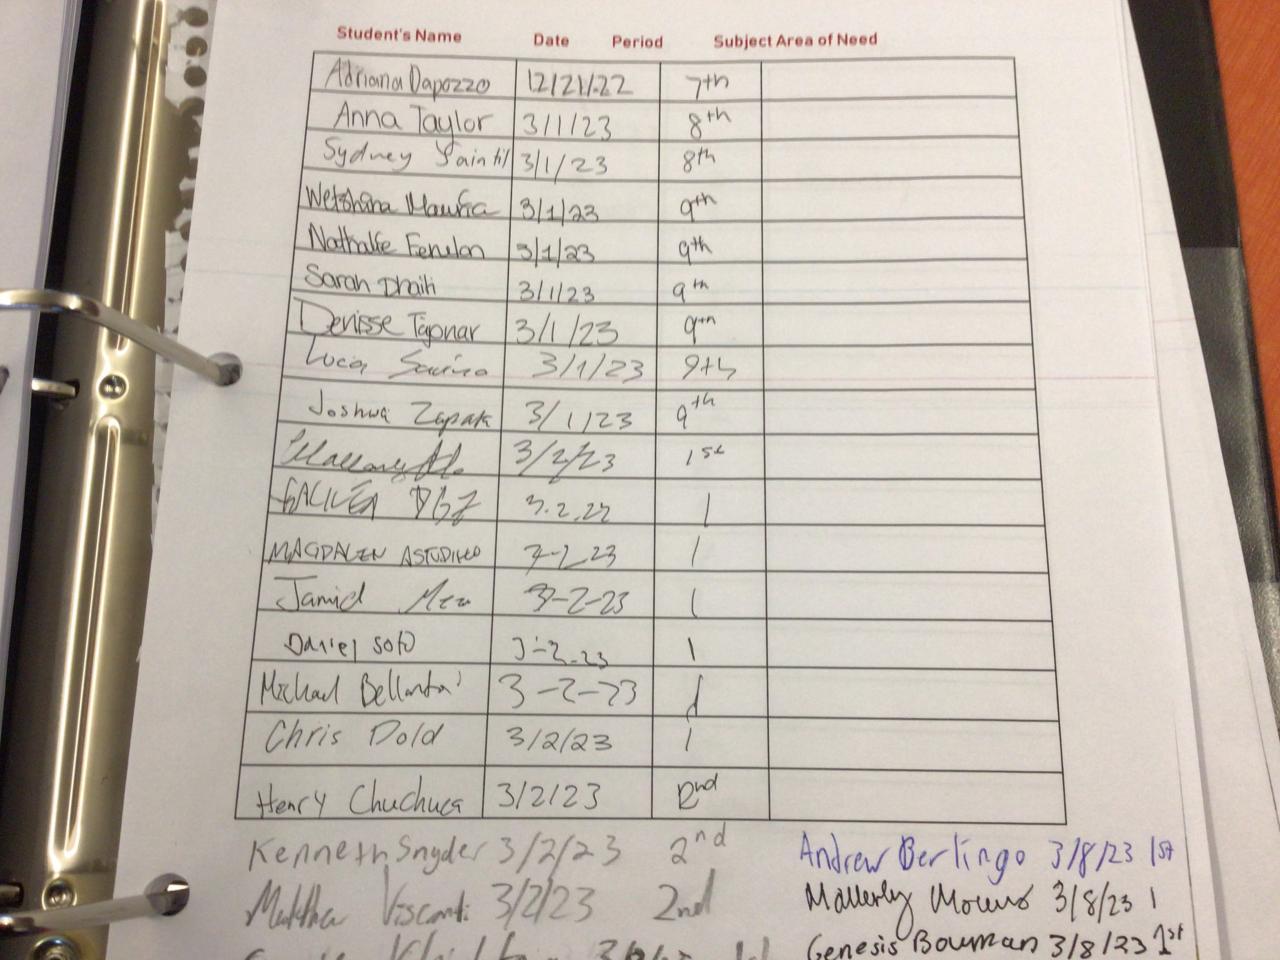 Student's Name Date Period Subject Area of Need
Adriana Dapozzo 12/21/22 7th
Anna Taylor 3/1/23 8th
Sydney Saintil 3/1/23 8th
3/1/23 9th
Nathalie Fenelon 3/1/23 9th
Sarah Dhaiti 3/1/23 9th
Denisse 3/1/23 9th
Luca 3/1/23 9th
Joshua Zapata 3/1/23 9th
3/2/23 1st
3.2.22 1
MAGDALEN ASTUDILLO 2.23 1
Jamid 3-2-23 1
Daniel Soto 3-2-23 1
Michael 3-2-23 1
Chris Dold 3/2/23 1
Henry Chuchuca 3/2/23 2nd
Kenneth Snyder 3/2/23 2nd
Visconti 3/2/23 2nd
Andrew Berlingo 3/8/23 1st
Mallerly Moreno 3/8/23 1
Genesis Bowman 3/8/23 1st